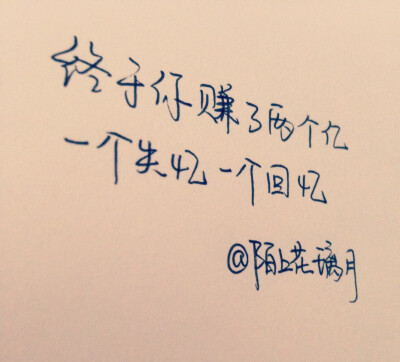 终于你赚了两个亿
一个失忆一个回忆
@陌上花璃月